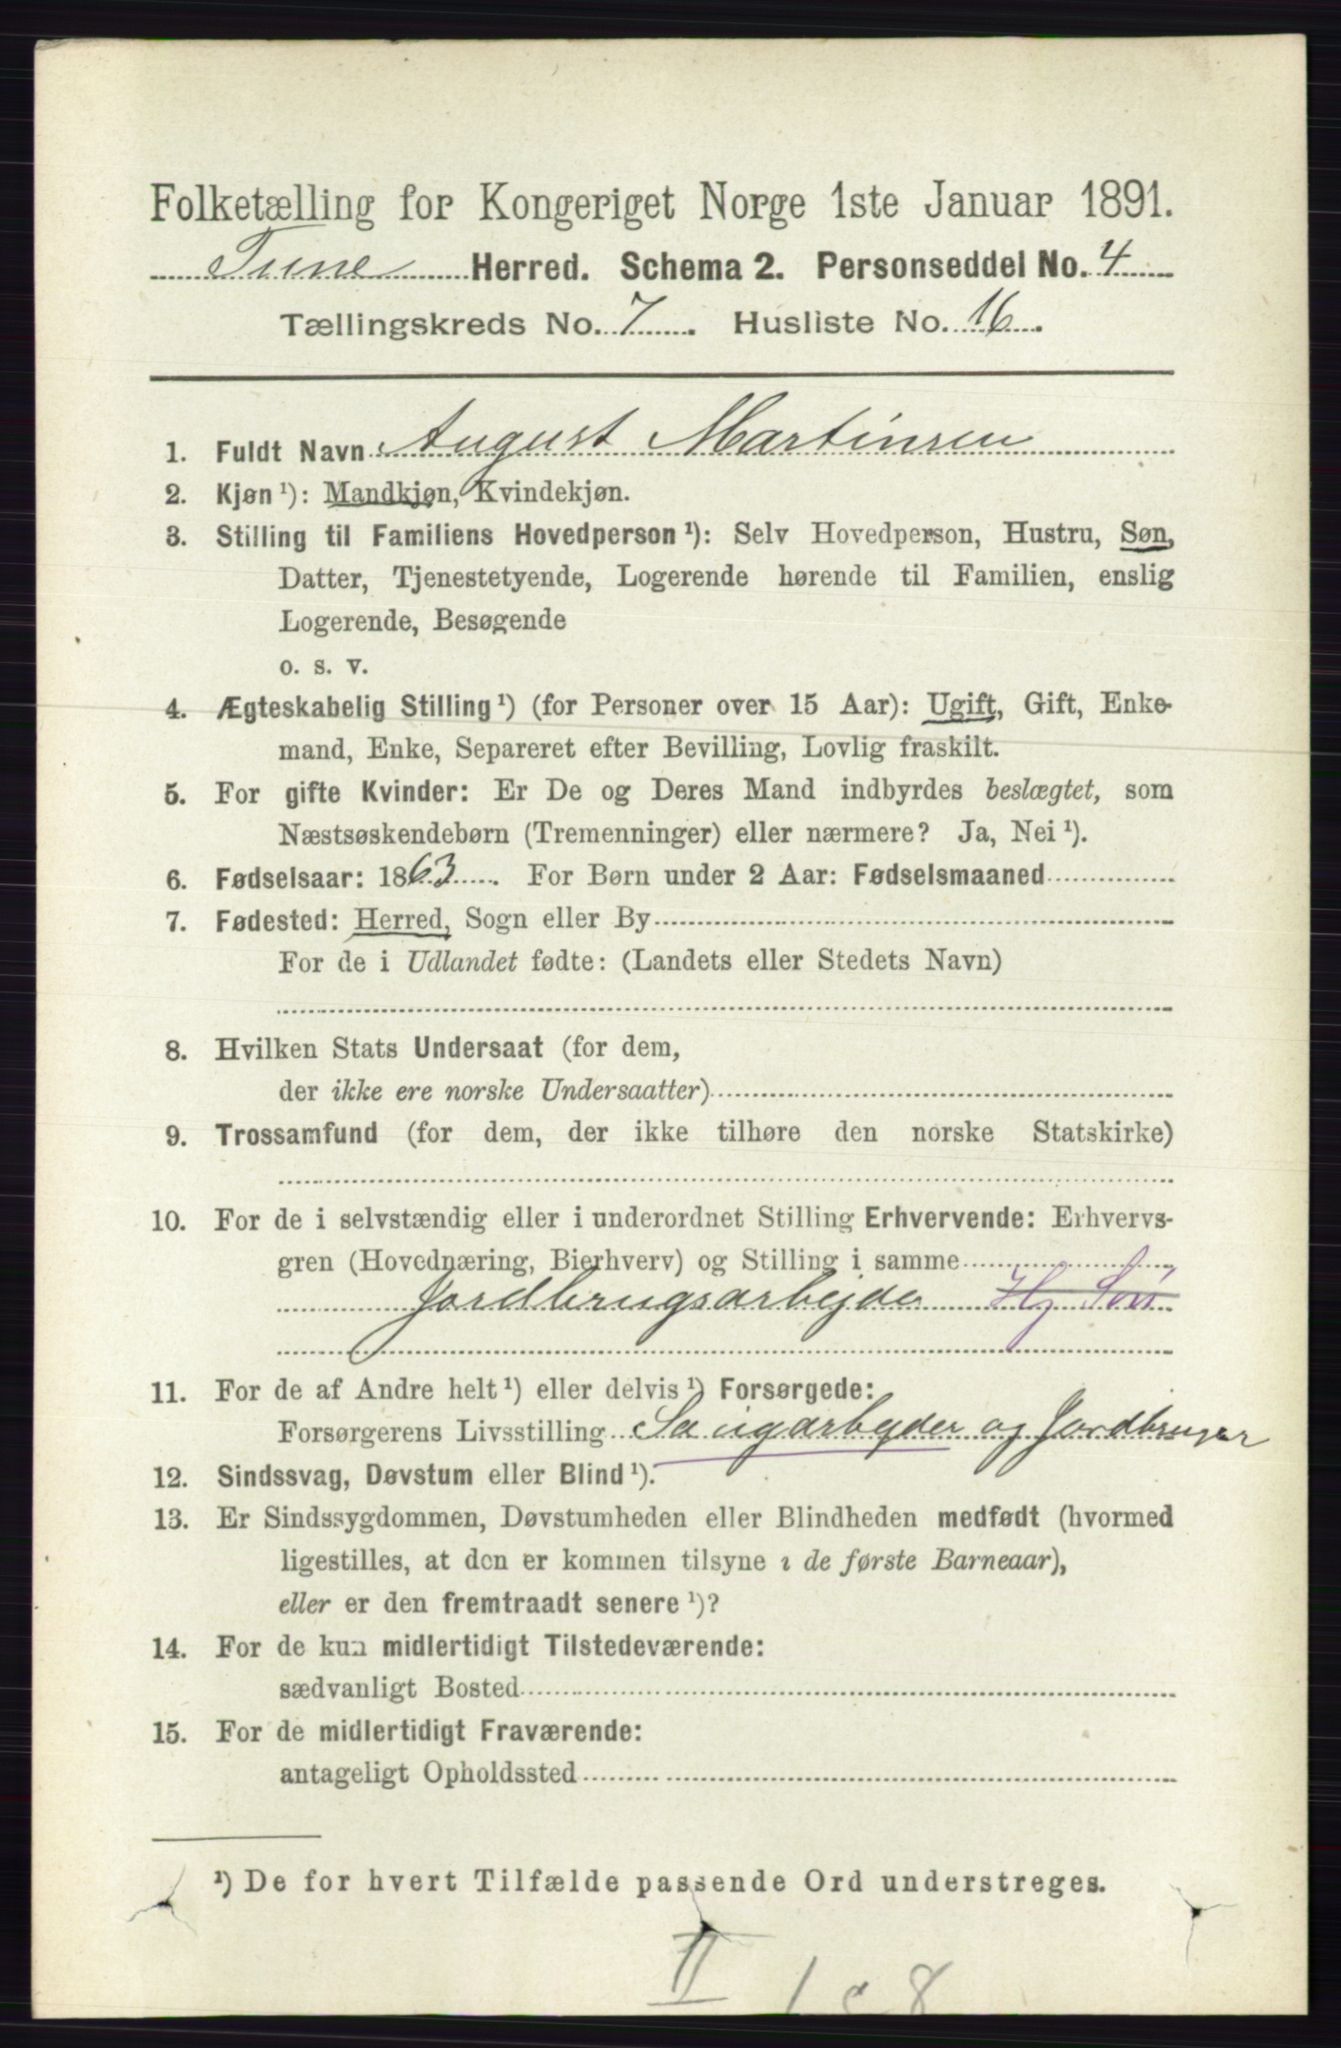 Folketælling for Kongeriget Norge 1ste Januar 1891.
Tune Herred. Schema 2. Personseddel No. 4
Tællingskreds No. 7. Husliste No. 16.
1. Fuldt Navn August Martinsen
2. Kjøn ¹): Mandkjøn, Kvindekjøn.
3. Stilling til Familiens Hovedperson ¹): Selv Hovedperson, Hustru, Søn,
Datter, Tjenestetyende, Logerende hørende til Familien, enslig
Logerende, Besøgende
o. s. v.
4. Ægteskabelig Stilling ¹) (for Personer over 15 Aar): Ugift, Gift, Enke-
mand, Enke, Separeret efter Bevilling, Lovlig fraskilt.
5. For gifte Kvinder: Er De og Deres Mand indbyrdes beslægtet, som
Næstsøskendebørn (Tremenninger) eller nærmere? Ja, Nei ¹).
6. Fødselsaar: 1863. For Børn under 2 Aar: Fødselsmaaned
7. Fødested: Herred, Sogn eller By
For de i Udlandet fødte: (Landets eller Stedets Navn)
8. Hvilken Stats Undersaat (for dem,
der ikke ere norske Undersaatter)
9. Trossamfund (for dem, der ikke tilhøre den norske Statskirke)
10. For de i selvstændig eller i underordnet Stilling Erhvervende: Erhvervs-
gren (Hovednæring, Bierhverv) og Stilling i samme
Jordbrugsarbejde Hj Søn
11. For de af Andre helt ¹) eller delvis ¹) Forsørgede:
Forsørgerens Livsstilling Saugarbejder og Jordbruger
12. Sindssvag, Døvstum eller Blind ¹).
13. Er Sindssygdommen, Døvstumheden eller Blindheden medfødt (hvormed
ligestilles, at den er kommen tilsyne i de første Barneaar),
eller er den fremtraadt senere ¹)?
14. For de kun midlertidigt Tilstedeværende:
sædvanligt Bosted
15. For de midlertidigt Fraværende:
antageligt Opholdssted
¹) De for hvert Tilfælde passende Ord understreges.
II